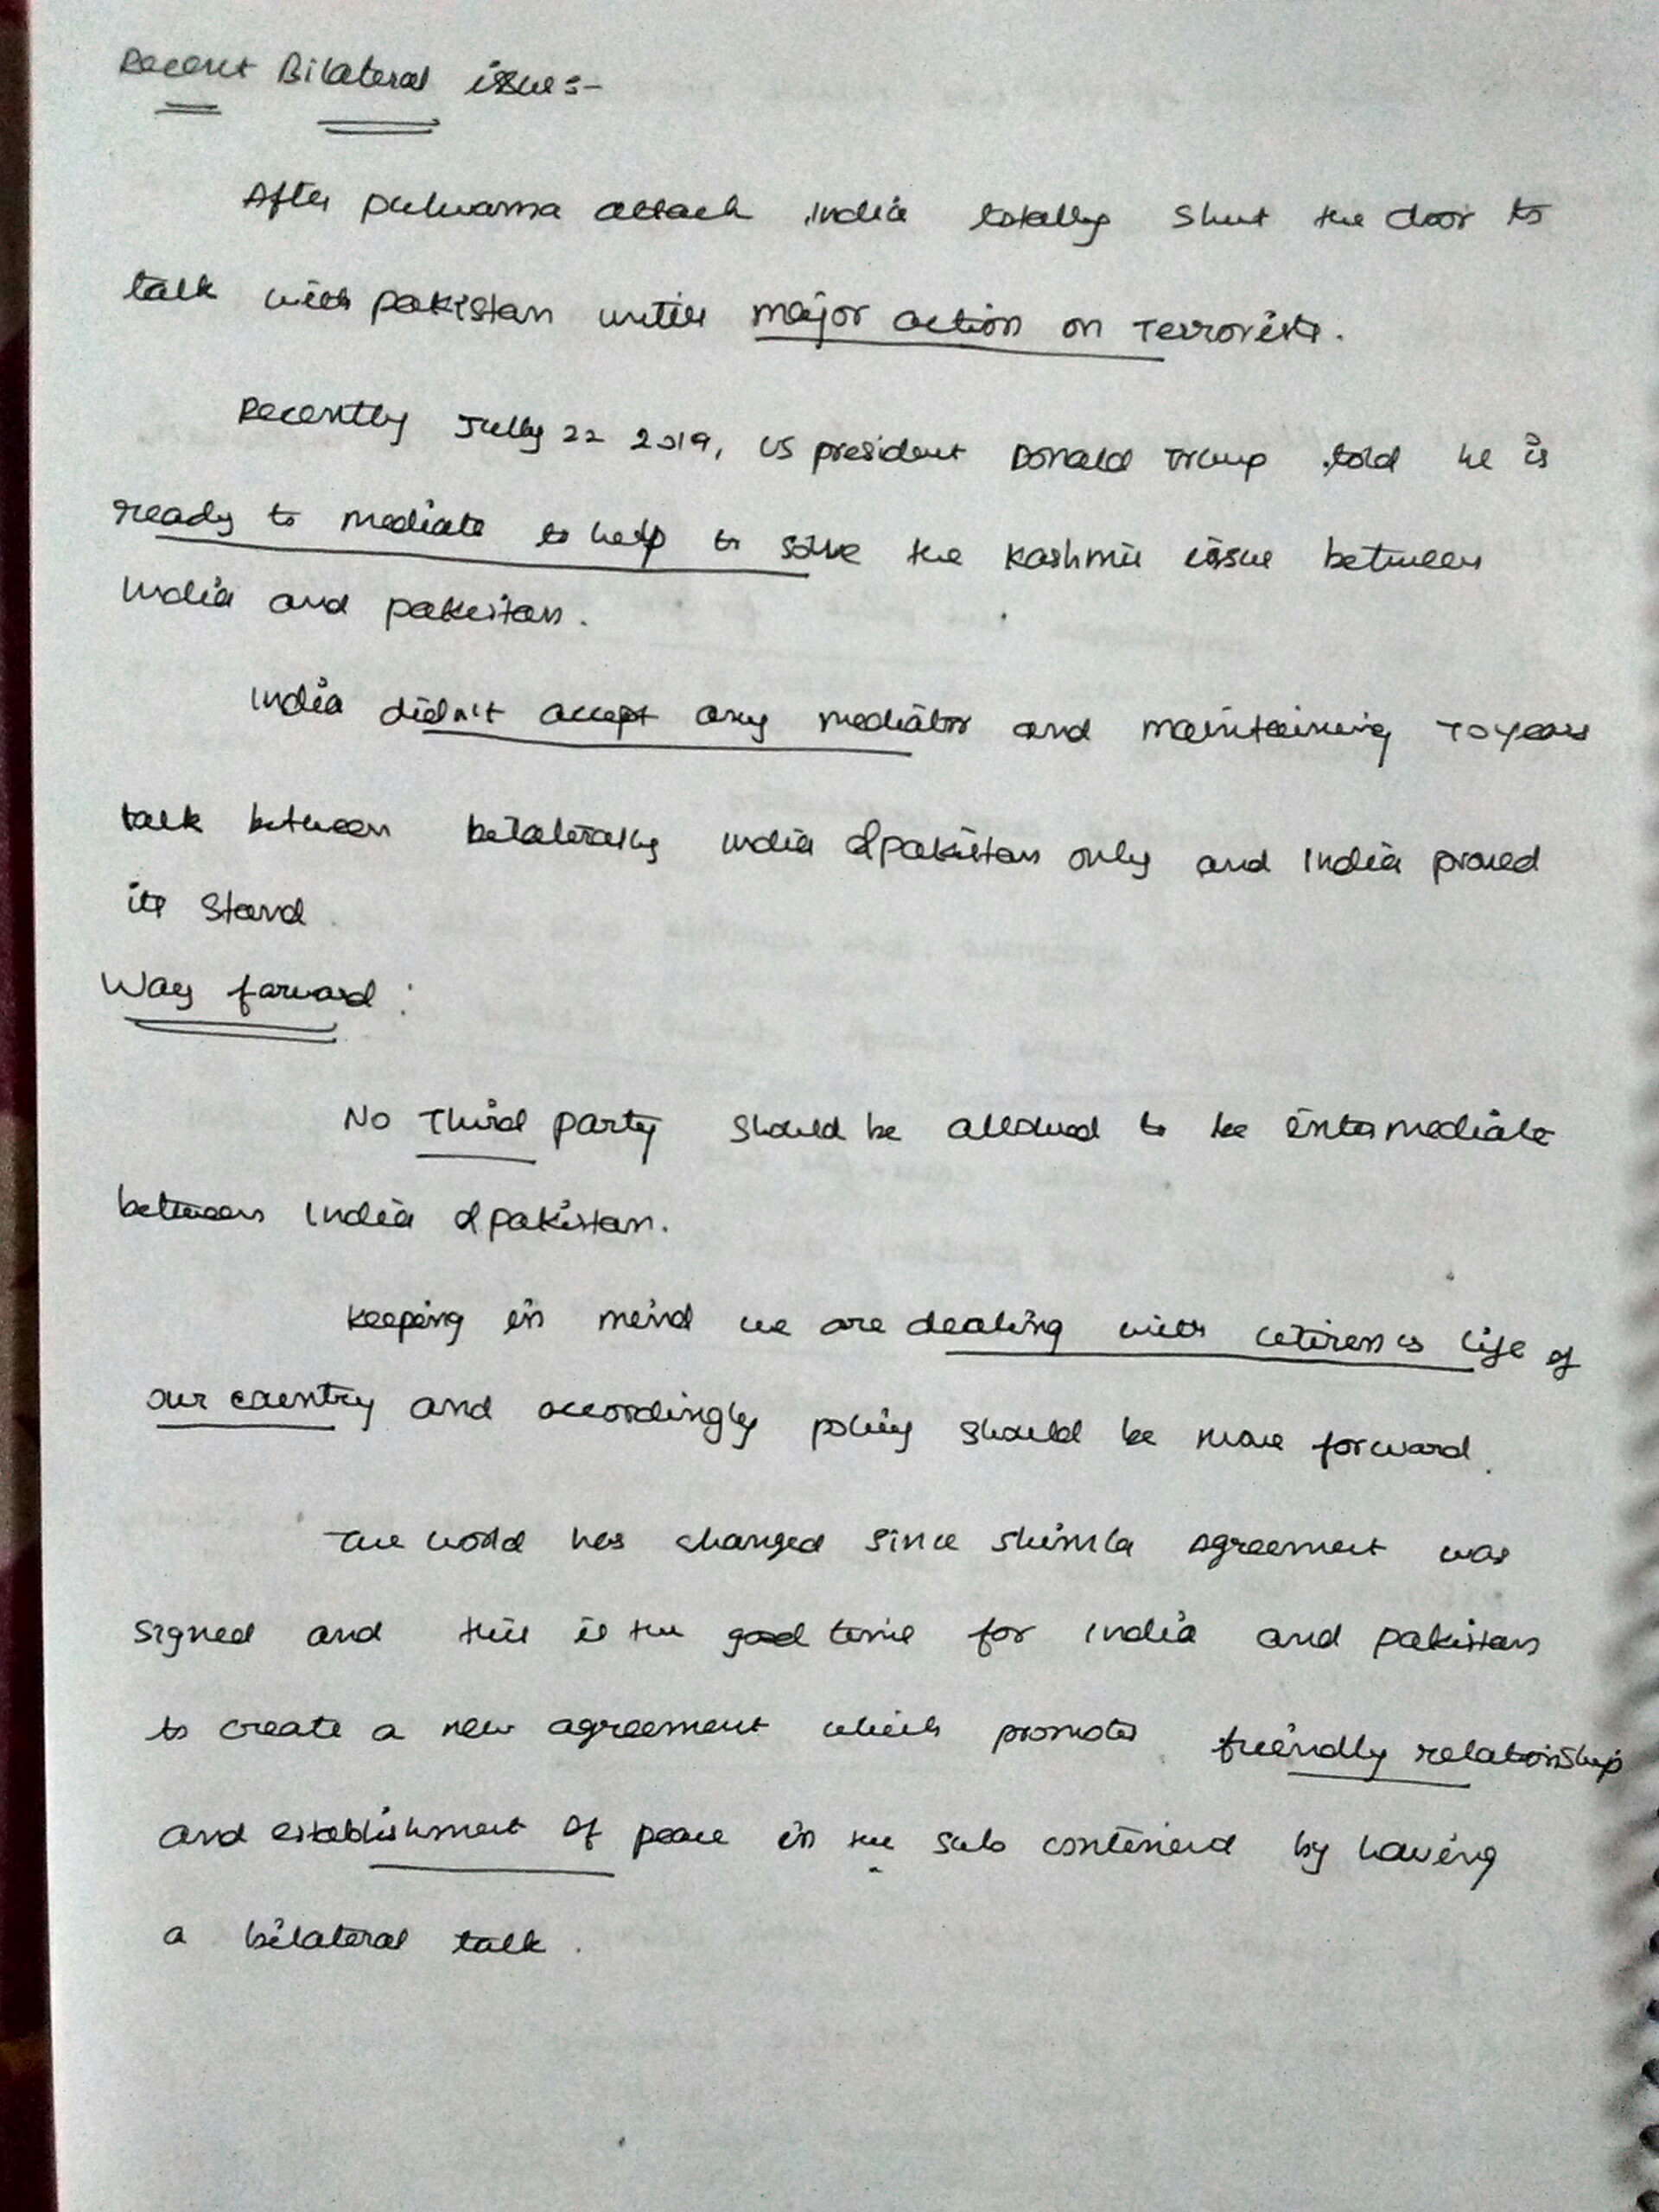 Recent Bilateral issue:-
After pulwama attack India totally shut the door to
talk with pakistan until major action on Terrorists.
Recently Jully 22 2019, US president Donald Trump told he is
ready to mediate to help to solve the Kashmir issue between
India and pakistan.
India didn't accept any mediator and maintaining 70 years
talk between bilaterally India & pakistan only and India proved
its stand.
Way forward :
No Third party should be allowed to be intermediate
between India & pakistan.
Keeping in mind we are dealing with citizens life of
our country and accordingly policy should be move forward.
The world has changed since Shimla Agreement was
signed and this is the good time for India and pakistan
to create a new agreement which promotes friendly relationship
and establishment of peace in the sub continend by having
a bilateral talk.